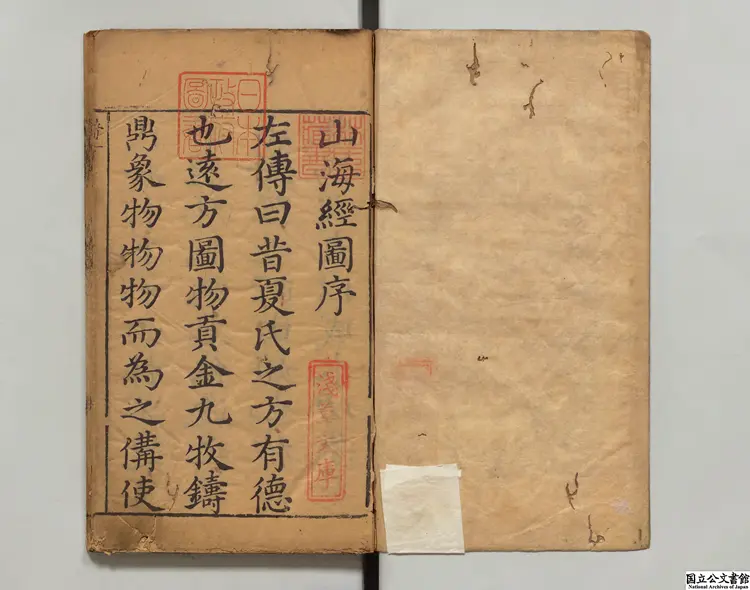 山海經圖序
左傳曰昔夏氏之方有德
也遠方圖物貢金九牧鑄
鼎象物物物而為之備使
日本
政府
圖書
淺草文庫
国立公文書館
National Archives of Japan